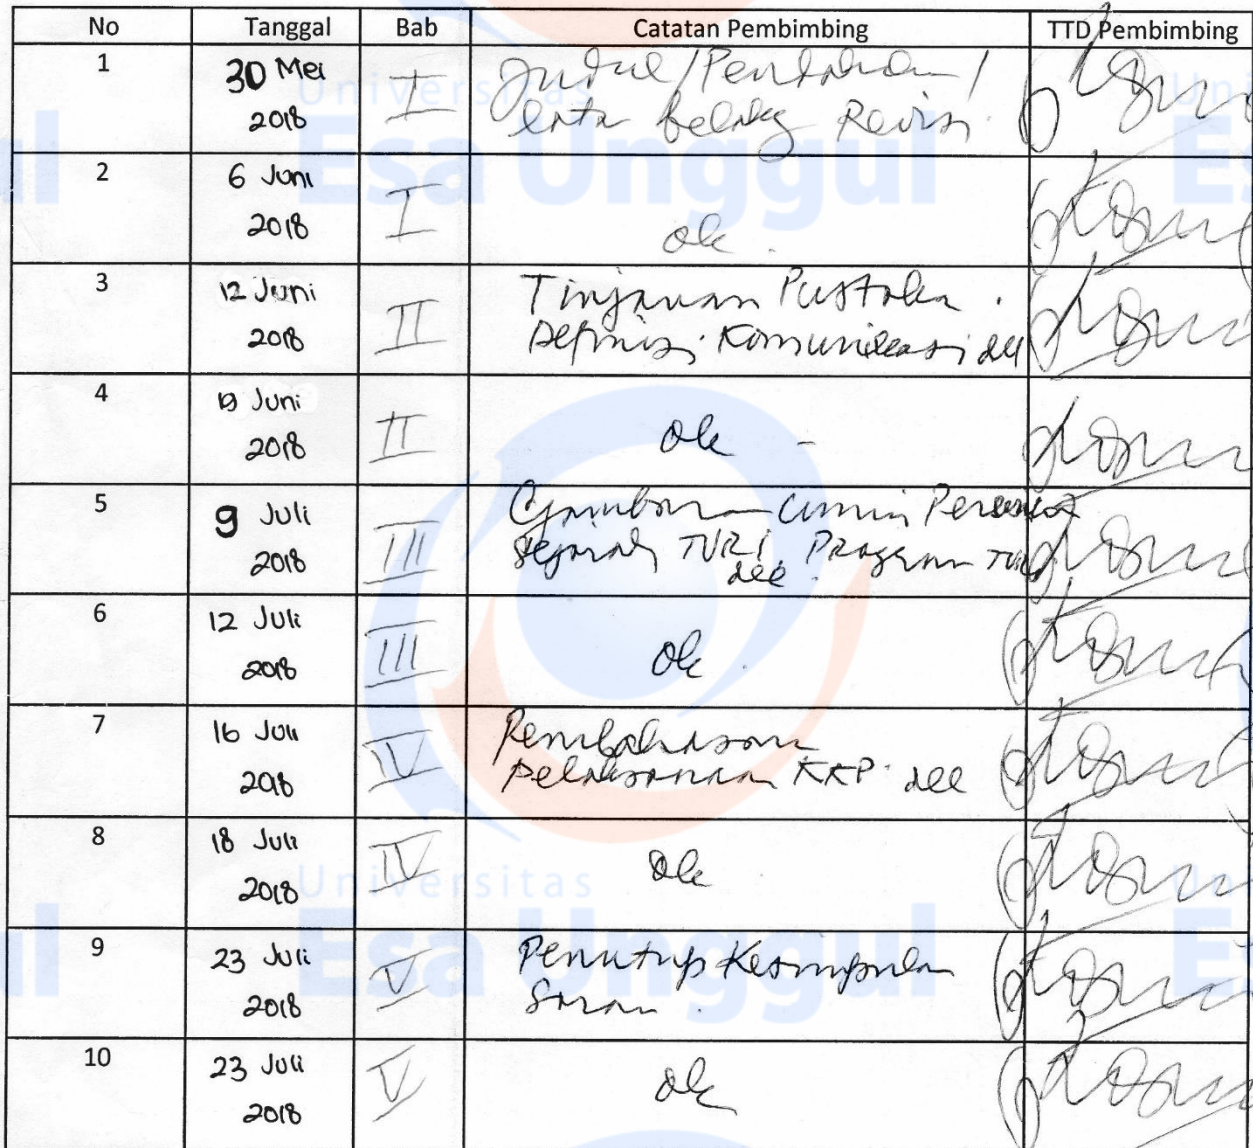 No Tanggal Bab Catatan Pembimbing TTD Pembimbing
1 30 Mei 2018 I Judul / Pendahuluan /
Latar belakg Revisi
2 6 Juni 2018 I ok
3 12 Juni 2018 II Tinjauan Pustaka
Definisi Komunikasi dll
4 Juni 2018 II ok
5 9 Juli 2018 III Gambaran Umum
Sejarah TVRI, Program TVRI
dll
6 12 Juli 2018 III ok
7 16 Juli 2018 IV Pembahasan
Pelaksanaan KKP dll
8 18 Juli 2018 IV ok
9 23 Juli 2018 V Penutup Kesimpulan
Saran
10 23 Juli 2018 V ok
Universitas
Esa Unggul
Universitas
Esa Unggul